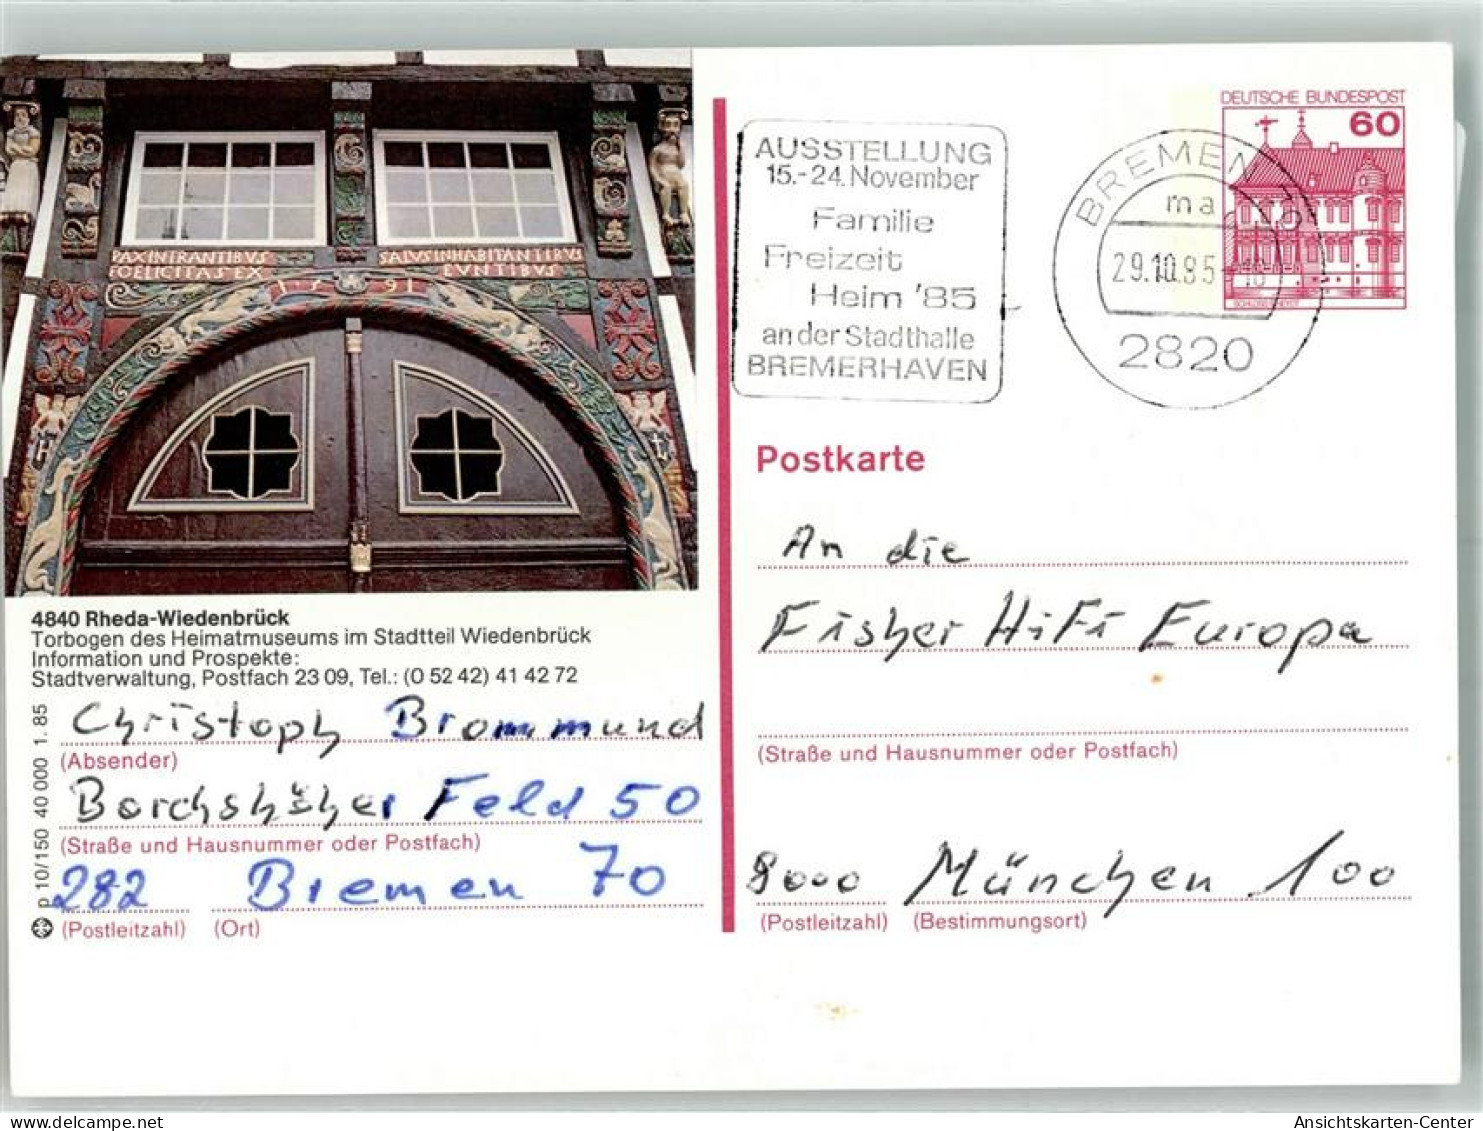 PAX INTRANTIBVS SALVS INHABITANTIBVS
FOELICITAS EX EVNTIBVS
1591
4840 Rheda-Wiedenbrück
Torbogen des Heimatmuseums im Stadtteil Wiedenbrück
Information und Prospekte:
Stadtverwaltung, Postfach 23 09, Tel.: (0 52 42) 41 42 72
Christoph Brommund
(Absender)
Borchshöher Feld 50
(Straße und Hausnummer oder Postfach)
282 Bremen 70
(Postleitzahl) (Ort)
p 10/150 40 000 1. 85
AUSSTELLUNG
15.-24. November
Familie
Freizeit
Heim '85
an der Stadthalle
BREMERHAVEN
BREMEN 70
ma
29.10.85
2820
DEUTSCHE BUNDESPOST
60
Postkarte
An die
Fisher HiFi Europa
(Straße und Hausnummer oder Postfach)
8000 München 100
(Postleitzahl) (Bestimmungsort)
Ansichtskarten-Center